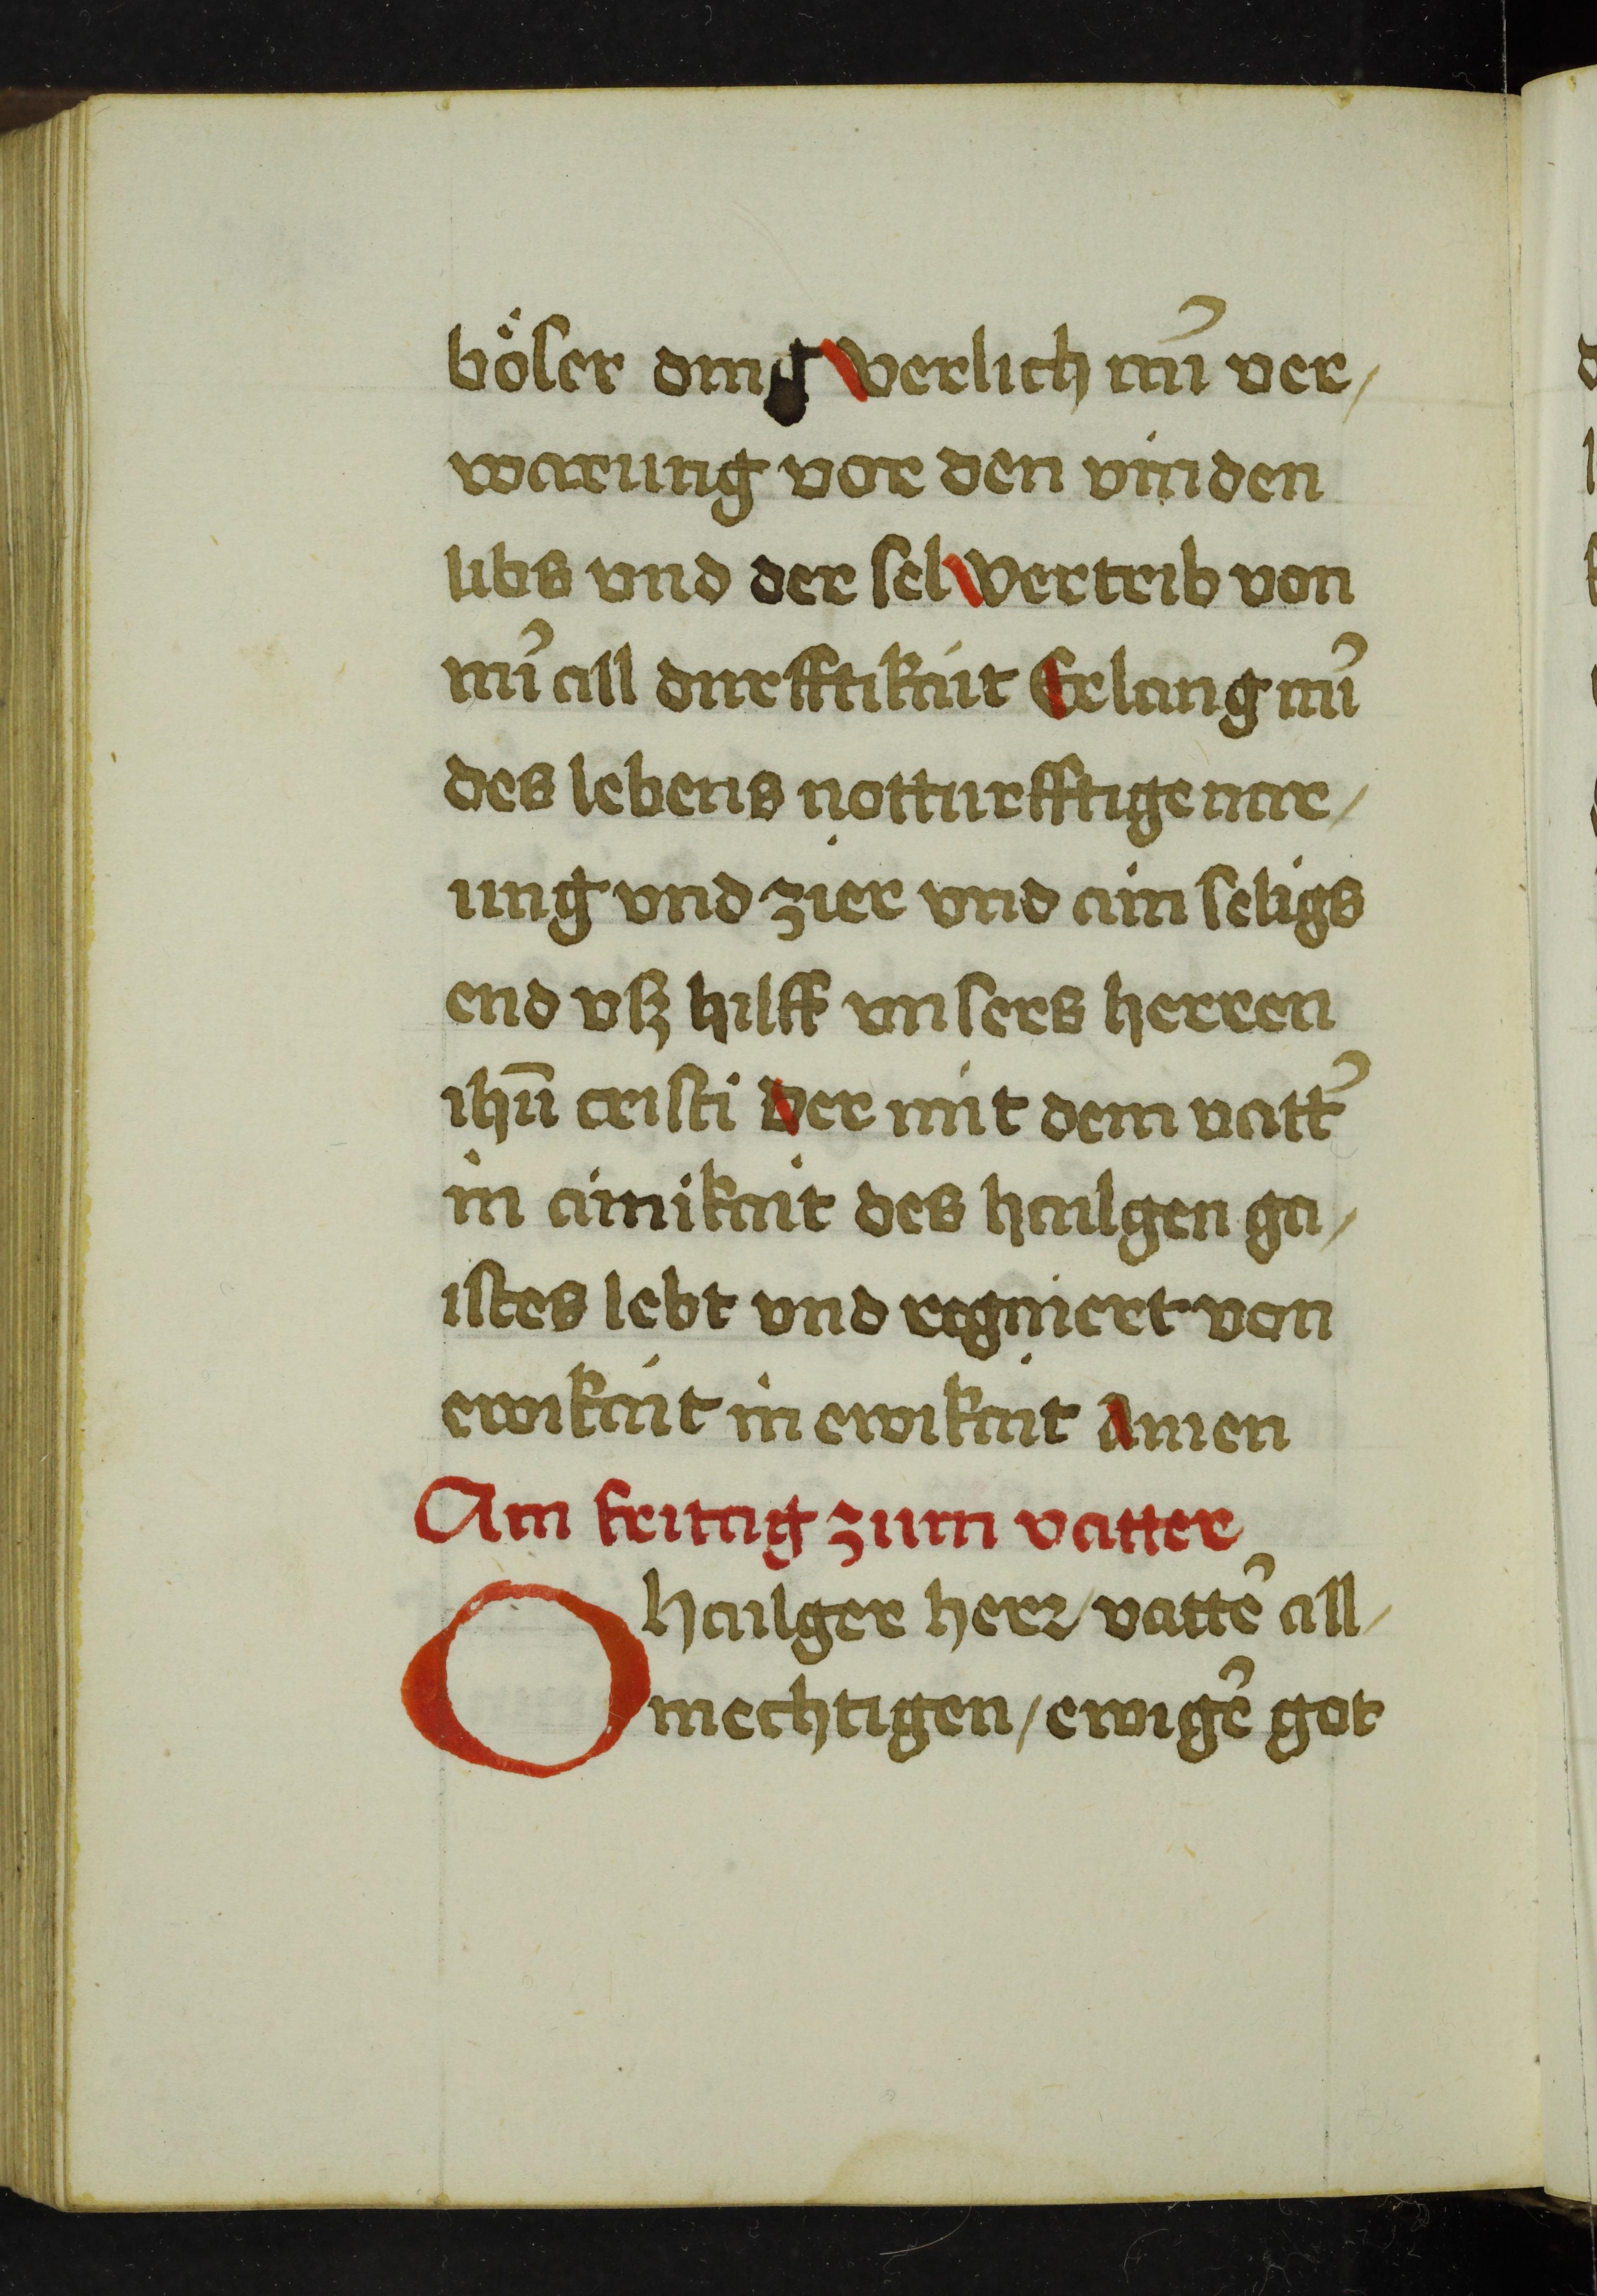 böser ding Verlich mir̉ ver/
warung vor den vinden
libs vnd der sel Vertrib von
mi᷑ all durfftikait Erlang mi᷑
des lebens notturfftige nar/
ung vnd zier vnd ain seligs
end vsz hilff vnsers herren
ihū cristi Der mit dem vatt᷑
in ainikait des hailgen ga/
istes lebt vnd regniert von
ewikait in ewikait Amen
Am fritag zum vatter
O hailger herr/ vatte᷑ all/
mechtigen/ ewige᷑ got